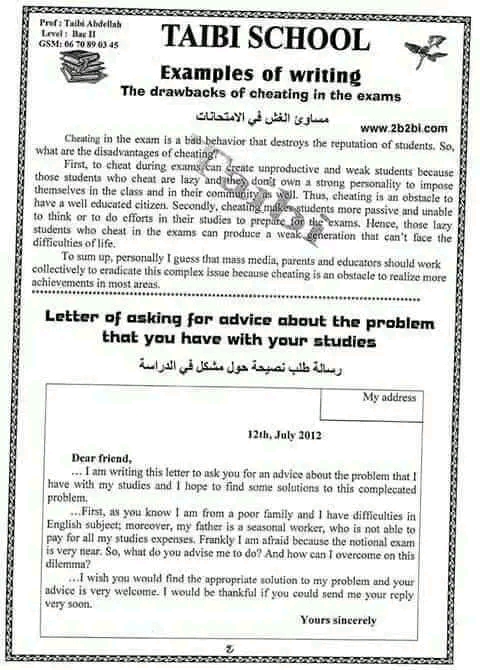 Prof : Taibi Abdellah
Level : Bac II
GSM: 06 70 89 03 45
TAIBI SCHOOL
Examples of writing
The drawbacks of cheating in the exams
مساوئ الغش في الامتحانات
www.2b2bi.com
Cheating in the exam is a bad behavior that destroys the reputation of students. So,
what are the disadvantages of cheating?
First, to cheat during exams can create unproductive and weak students because
those students who cheat are lazy and they don't own a strong personality to impose
themselves in the class and in their community as well. Thus, cheating is an obstacle to
have a well educated citizen. Secondly, cheating makes students more passive and unable
to think or to do efforts in their studies to prepare for the exams. Hence, those lazy
students who cheat in the exams can produce a weak generation that can't face the
difficulties of life.
To sum up, personally I guess that mass media, parents and educators should work
collectively to eradicate this complex issue because cheating is an obstacle to realize more
achievements in most areas.
Letter of asking for advice about the problem
that you have with your studies
رسالة طلب نصيحة حول مشكل في الدراسة
My address
12th, July 2012
Dear friend,
... I am writing this letter to ask you for an advice about the problem that I
have with my studies and I hope to find some solutions to this complecated
problem.
...First, as you know I am from a poor family and I have difficulties in
English subject; moreover, my father is a seasonal worker, who is not able to
pay for all my studies expenses. Frankly I am afraid because the notional exam
is very near. So, what do you advise me to do? And how can I overcome on this
dilemma?
...I wish you would find the appropriate solution to my problem and your
advice is very welcome. I would be thankful if you could send me your reply
very soon.
Yours sincerely